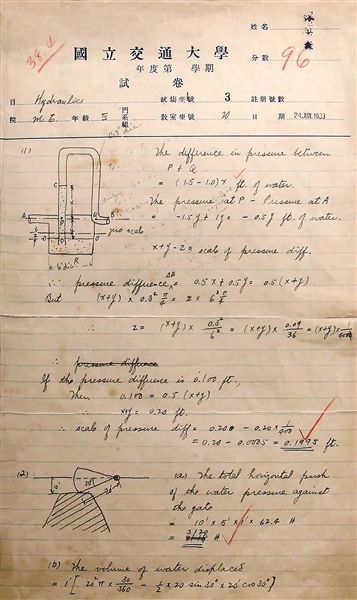 38.4
姓名
國立交通大學
分數 96
年度第 學期
試卷
目 Hydraulics 試場坐號 3 註冊號數
院 M.E. 年級 IV 門系組 教室坐號 20 日期 24 JUN 1933
(1) The difference in pressure between
P & Q
= (1.5-1.0)x ft. of water.
The pressure at P - Pressure at A
= -1.5y + 1y = -0.5y ft. of water.
x+y-z = scale of pressure diff.
∴ pressure difference AB = 0.5x + 0.5y = 0.5(x+y)
But (x+y) × 0.3² π/4 = z × 6² π/4
∴ z = (x+y) × 0.3²/6² = (x+y) × 0.09/36 = (x+y) × 1/400
∴ pressure difference
If the pressure difference is 0.100 ft.,
Then 0.100 = 0.5(x+y)
x+y = 0.20 ft.
∴ scale of pressure diff = 0.200 - 0.20 × 1/400
= 0.20 - 0.0005 = 0.1995 ft.
(2) (a) The total horizontal push
of the water pressure against
the gate
= 10' × 5' × 1' × 62.4 #
= 3120 #
(b) The volume of water displaced
= 1 [ 20² π × 30/360 - 1/2 × 20 sin 30° × 20 cos 30° ]